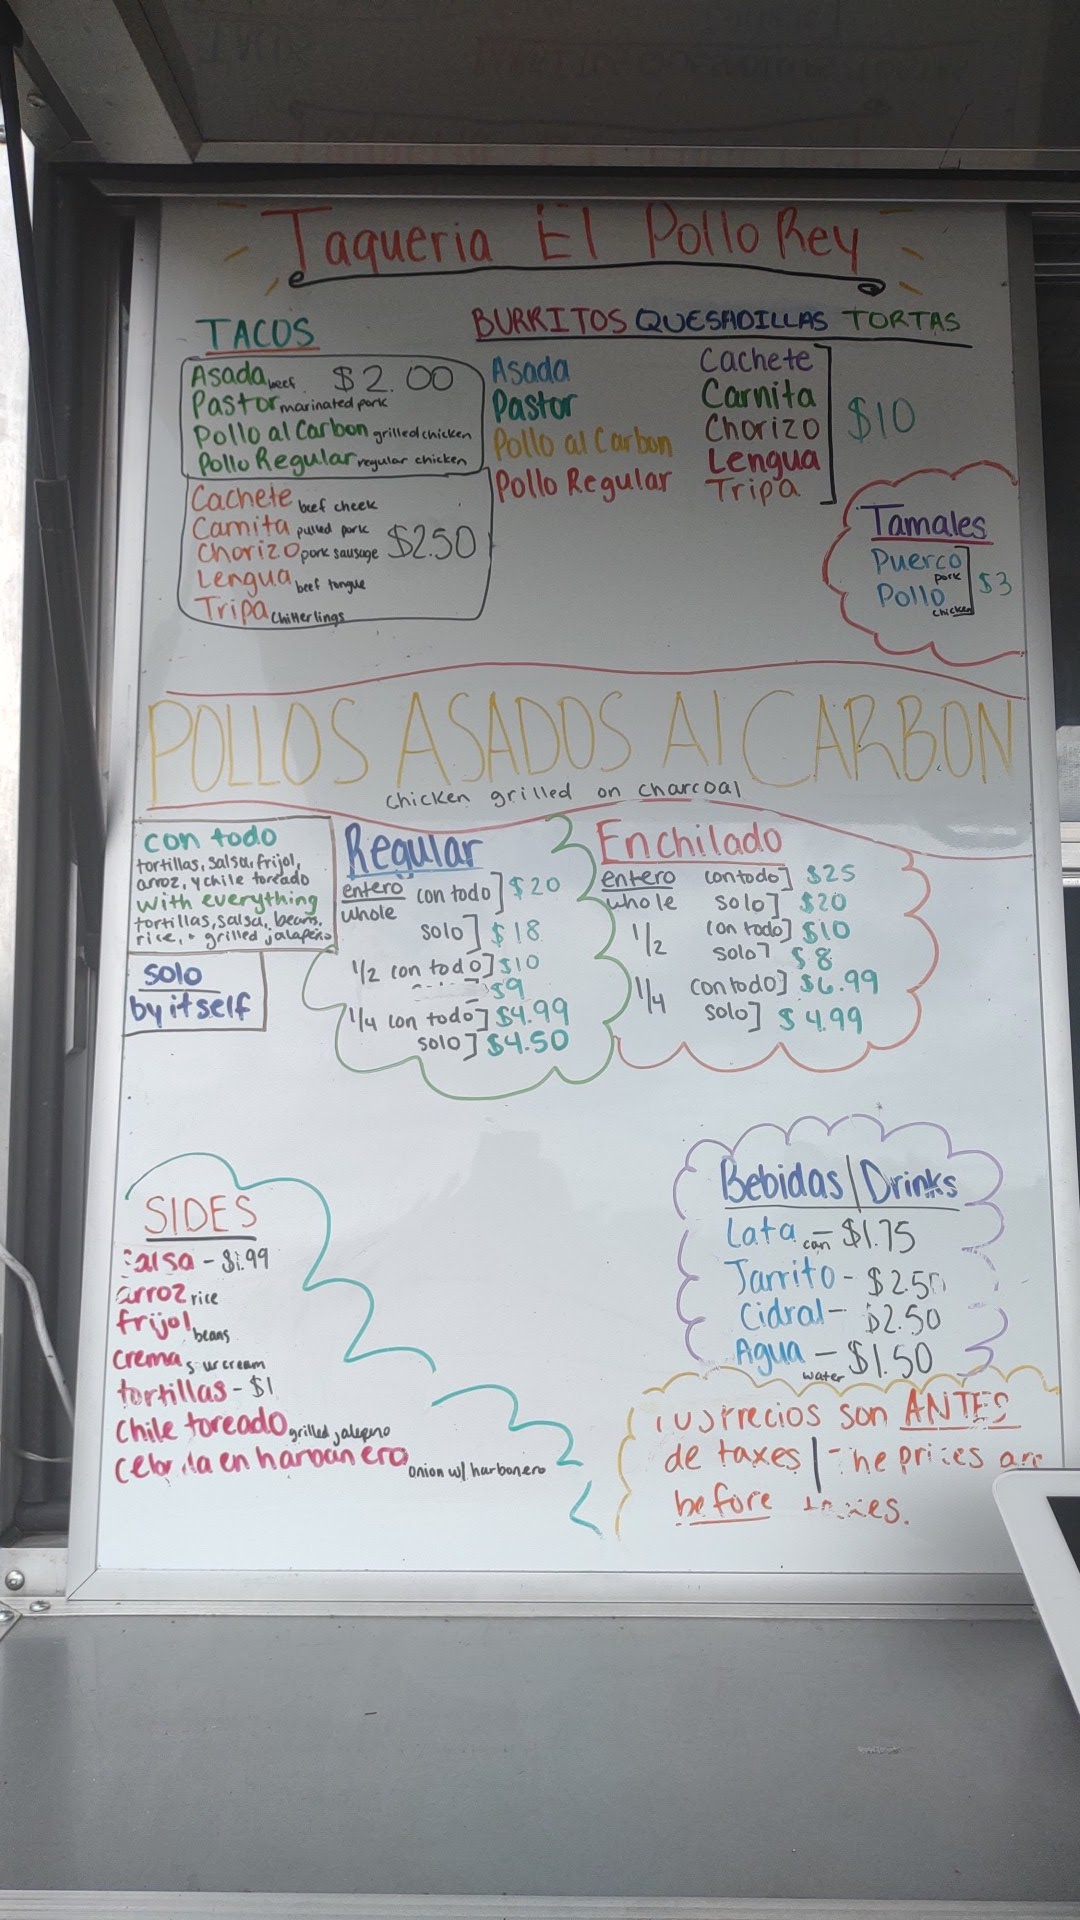 Taqueria El Pollo Rey
TACOS
Asada beef $2.00
Pastor marinated pork
Pollo al Carbon grilled chicken
Pollo Regular regular chicken
Cachete beef cheek
Carnita pulled pork
Chorizo pork sausage $2.50
Lengua beef tongue
Tripa chitterlings
BURRITOS QUESADILLAS TORTAS
Asada
Pastor
Pollo al Carbon
Pollo Regular
Cachete
Carnita
Chorizo
Lengua
Tripa
$10
Tamales
Puerco
pork
Pollo
chicken
$3
POLLOS ASADOS Al CARBON
chicken grilled on charcoal
con todo
tortillas, salsa, frijol,
arroz, y chile toreado
with everything
tortillas, salsa, beans,
rice, + grilled jalapeño
solo
by itself
Regular
entero con todo] $20
whole
solo] $18
1/2 con todo] $10
$9
1/4 con todo] $4.99
solo] $4.50
Enchilado
entero con todo] $25
whole solo] $20
1/2 con todo] $10
solo] $8
1/4 con todo] $6.99
solo] $4.99
SIDES
salsa - $1.99
arroz rice
frijol beans
crema sour cream
tortillas - $1
chile toreado grilled jalepeno
onion w/ harbonero
Bebidas/Drinks
Lata can - $1.75
Jarrito - $2.50
Cidral - $2.50
Agua water - $1.50
precios son ANTES
de taxes | The prices are
before taxes.